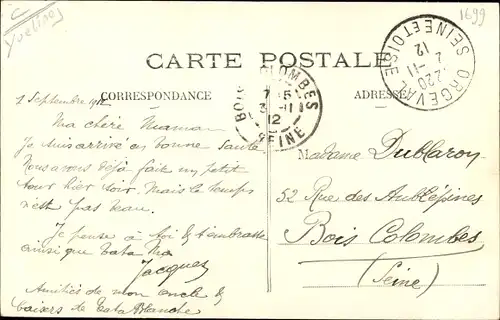 C
Yvelines
1699
CARTE POSTALE
CORRESPONDANCE
ADRESSE
ORGEVAL
SEINE ET OISE
2 -11
12
BOIS COLOMBES
SEINE
7 15
3 -11
12
2 Septembre 1912
Ma chère Maman
Je suis arrivé en bonne santé
Nous avons déjà fait un petit
tour hier soir. Mais le temps
n'est pas beau.
Je pense à toi & t'embrasse
ainsi que Tata Ma
Jacques
Amitiés de mon oncle &
baisers de Tata Blanche
Madame Dublaron
52 Rue des Aubépines
Bois Colombes
(Seine)